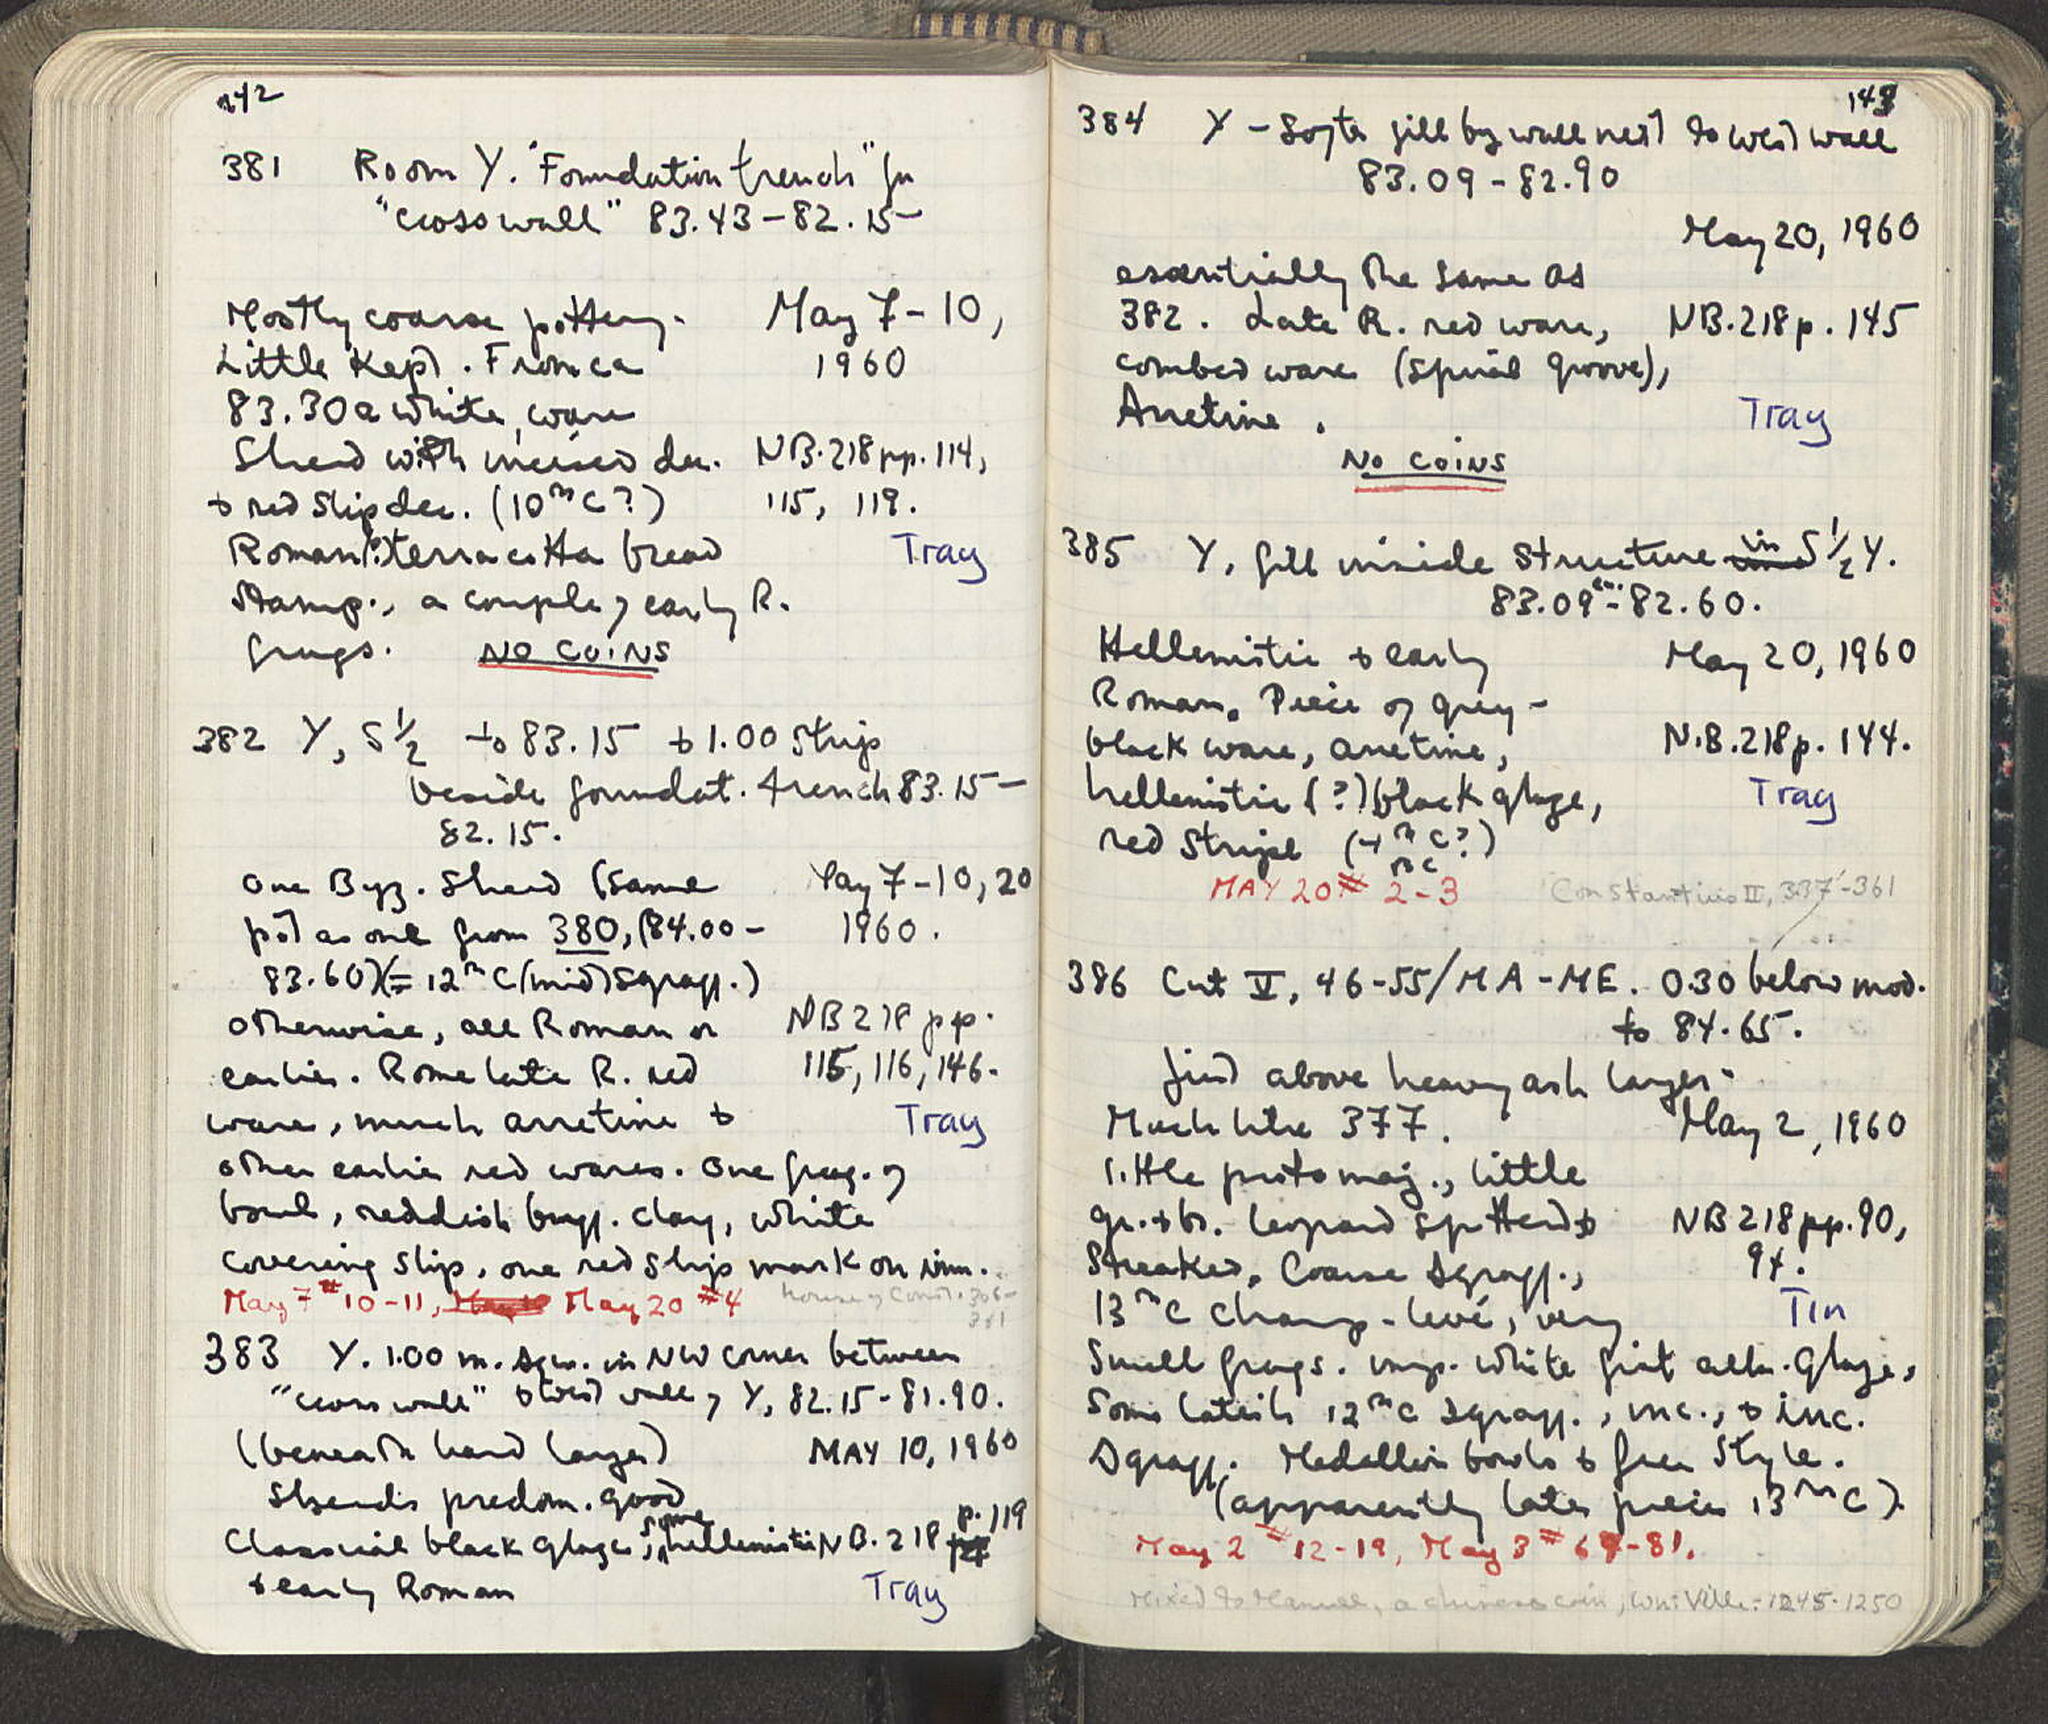 142
381 Room Y. "Foundation trench" for
"cross wall" 83.43 - 82.15
Mostly coarse pottery. May 7-10,
Little kept. From ca 1960
83.30 a white ware
Sherd with incised dec. NB.218 pp. 114,
+ red slip dec. (10th C?) 115, 119.
Roman(?) terracotta bread Tray
stamp., a couple of early R.
frags. NO COINS
382 Y, S 1/2 to 83.15 + 1.00 strip
beside foundat. trench 83.15-
82.15.
One Byz. sherd (same May 7-10, 20
pot as one from 380, (84.00- 1960.
83.60)(= 12th C (mid) sgraff.)
otherwise, all Roman or NB 218 pp.
earlier. Some late R. red 115, 116, 146.
ware, much arretine + Tray
other earlier red wares. One frag. of
bowl, reddish buff. clay, white
covering slip, one red slip mark on rim.
May 7 # 10-11, May 20 # 4 House of Const. 306-
361
383 Y. 1.00 m. sq. in NW corner between
"cross wall" + west wall of Y, 82.15-81.90.
(beneath hard layer) MAY 10, 1960
Sherds predom. good
Classical black glaze, some hellenistic NB.218 p.119
+ early Roman Tray
143
384 Y - Softer fill by wall next to west wall
83.09 - 82.90
May 20, 1960
essentially the same as
382. Late R. red ware, NB.218 p. 145
combed ware (spiral groove),
Arretine. Tray
NO COINS
385 Y, fill inside structure in S 1/2 Y.
83.09 - 82.60.
Hellenistic + early May 20, 1960
Roman. Piece of grey-
black ware, arretine, N.B.218 p. 144.
hellenistic (?) black glaze, Tray
red stripe (4th C?)
BC
MAY 20 # 2-3 Constantius II, 337-361
386 Cut V, 46-55/MA-ME. 0.30 below mod.
to 84.65.
just above heavy ash layer.
Much like 377. May 2, 1960
little protomaj., little
gr. + br. leopard spotted + NB 218 pp. 90,
Streaked, Coarse sgraff., 94.
13th C champ-levé, very Tin
small frags. imp. white first alk. glaze,
Some lateish 12th C sgraff., inc., + inc.
sgraff. Medallion bowls + free style.
(apparently latest piece 13th C).
May 2 # 12-19, May 3 # 69-81.
Mixed to Manuel, a chinese coin, Wm Ville: 1245-1250